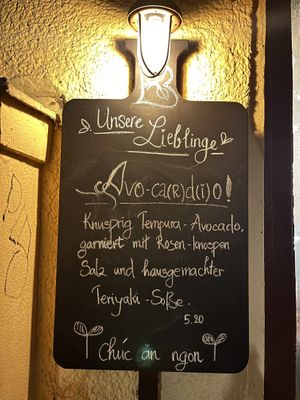 Unsere Lieblinge
Avo-ca(r)d(i)o!
Knusprig Tempura-Avocado,
garniert mit Rosen-knospen
Salz und hausgemachter
Teriyaki-Soße.
5.20
Chúc ăn ngon